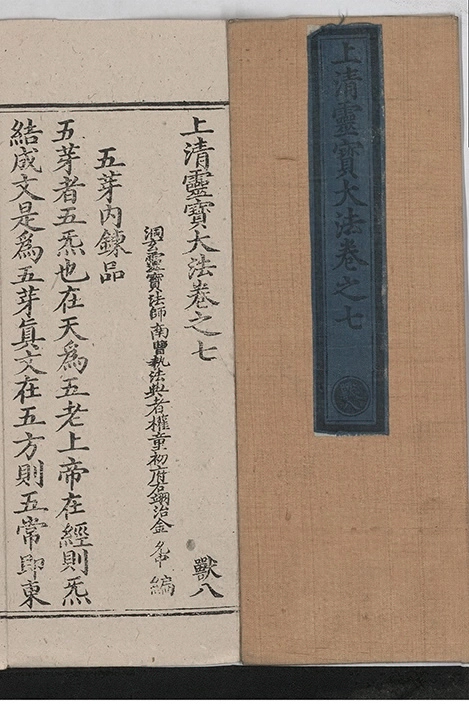 上清靈寶大法卷之七
獸
上清靈寶大法卷之七
獸八
洞玄靈寶法師南曹執法典者權童初府右翊治金
編
五芽內鍊品
五芽者五炁也在天爲五老上帝在經則炁
結成文是爲五芽眞文在五方則五常即東